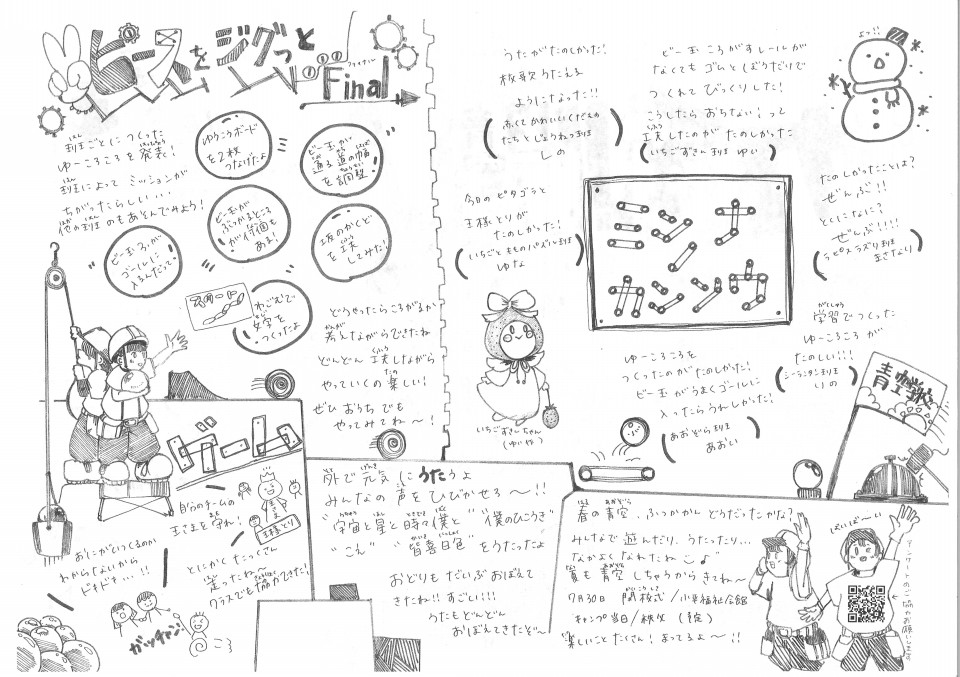 ピースをジグっと
Final
ファイナル
班ごとにつくった
ゆーころころを発表！
班によって ミッションが
ちがったらしい‥
他の班のもあとんでみよう！
ゆうこうボード
を2枚
つなげたよ
ビー玉が
通る道の幅
を調整！
ビー玉が
ぶつかるところ
が何個も
ある！
坂のかくど
を工夫
してみた！
ビー玉3つが
ゴールに
入るんだって
スタート
わごむで
文字を
つくったよ
どうやったらころがるか
考えながらできたね
どんどん工夫しながら
やっていくの楽しい！
ぜひ おうちでも
やってみてね〜！
ゲーム
自分のチームの
王さまを守れ！
王様とり
おにがいつくるのか
わからないから
ドキドキ…!!
とにかくたっくさん
走ったね〜
クラスでも協力できた！
ガッチャン
外で元気にうたうよ
みんなの声をひびかせろ〜!!
"宇宙と星と時々僕と" "僕のひこうき"
"こえ" "皆喜日色" をうたったよ
おどりもだいぶおぼえて
きたね!! すごい!!!
うたもどんどん
おぼえてきたぞ〜
うたがたのしかった！
校歌うたえる
ようにになった!!
あまくてかわいいくだもの
たちとじょうねつ班
しの
ビー玉ころがすレールが
なくてもゴムとぼうだけで
つくれてびっくりした！
こうしたらおちない！って
工夫したのがたのしかった
いちごずきん班 ゆい
よっ!!
今日のピタゴラと
王様とりが
たのしかった！
いちごとももののパズル班
ゆな
ミッション
カンソウ
たのしかったことは？
ぜんぶ!!
とくになに？
ぜんぶ!!!!
ラピスラズリ班
まさなり
学習でつくった
ゆーころころが
たのしい!!!
シーラカンス班
りの
いちごずきんちゃん
(ゆい作)
ゆーころころを
つくったのがたのしかった！
ビー玉がうまくゴールに
入ったらうれしかった！
あおぞら班
あおい
青空学校
春の青空、ふっかかんどうだったかな？
みんなで遊んだり、うたったり…
なかよくなれたね♪
夏も青空しちゃうからきてね〜
7月30日 開校式/小平福祉会館
キャンプ当日/秩父 (予定)
楽しいことたくさん！まってるよ〜!!
ばいば〜い
アンケートのご協力お願いします